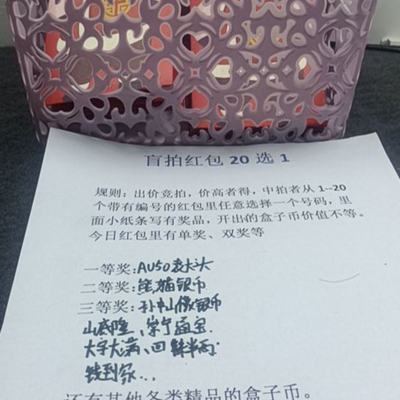 盲拍红包 20 选 1
规则：出价竞拍，价高者得，中拍者从 1--20
个带有编号的红包里任意选择一个号码，里
面小纸条写有奖品，开出的盒子币价值不等。
今日红包里有单奖、双奖等
一等奖:AU50袁大头
二等奖:熊猫银币
三等奖:孙中山像银币
崇宁通宝
大字大满、四
还有其他各类精品的盒子币。